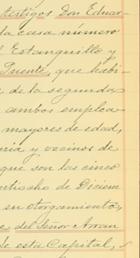 testigos Don Eduar-
la casa número
l Estanquillo y
Puente, que habi-
de la segunda
ambos emplea-
mayores de edad,
cia y vecinos de
que son las cinco
chiocho de Diciem
en otorgamiento,
e del Señor Arran
de esta Capital,